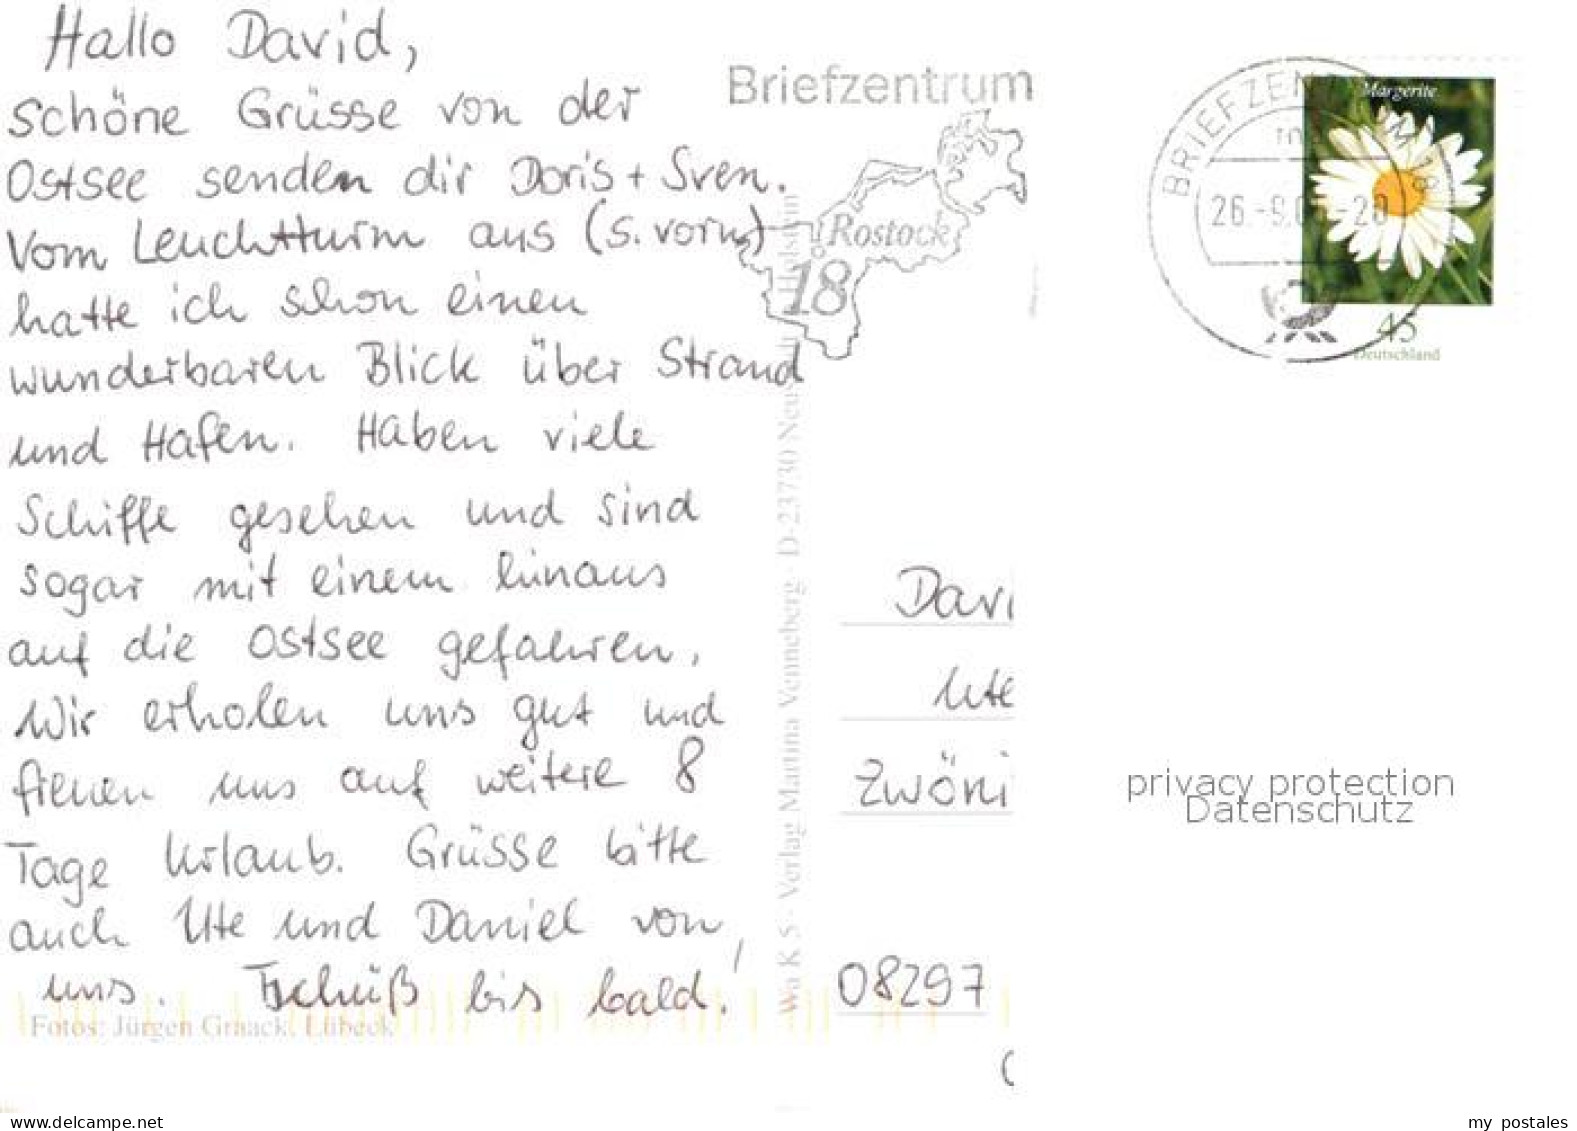 Hallo David,
schöne Grüsse von der
Ostsee senden dir Doris + Sven.
Vom Leuchtturm aus (s. vorn)
hatte ich schon einen
wunderbaren Blick über Strand
und Hafen. Haben viele
Schiffe gesehen und sind
sogar mit einem hinaus
auf die Ostsee gefahren.
Wir erholen uns gut und
freuen uns auf weitere 8
Tage Urlaub. Grüsse bitte
auch Ute und Daniel von
uns. Tschüß bis bald!
Fotos: Jürgen Graack, Lübeck
Wa K 5 · Verlag Martina Venneberg · D-23730 Neustadt Holstein
Briefzentrum
Rostock
18
BRIEFZENTRUM 18
26.-9.0 -20
Margerite
45
Deutschland
Davi
Ute
Zwöni
08297
privacy protection
Datenschutz
www.delcampe.net
my_postales